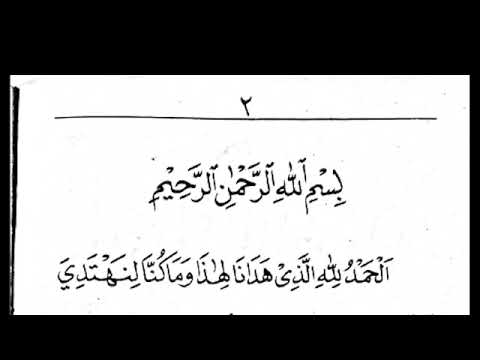 ٢
بِسْمِ ٱللّٰهِ ٱلرَّحْمٰنِ ٱلرَّحِيْمِ
اَلْحَمْدُ لِلّٰهِ الَّذِىْ هَدَانَا لِهٰذَا وَمَا كُنَّا لِنَهْتَدِيَ